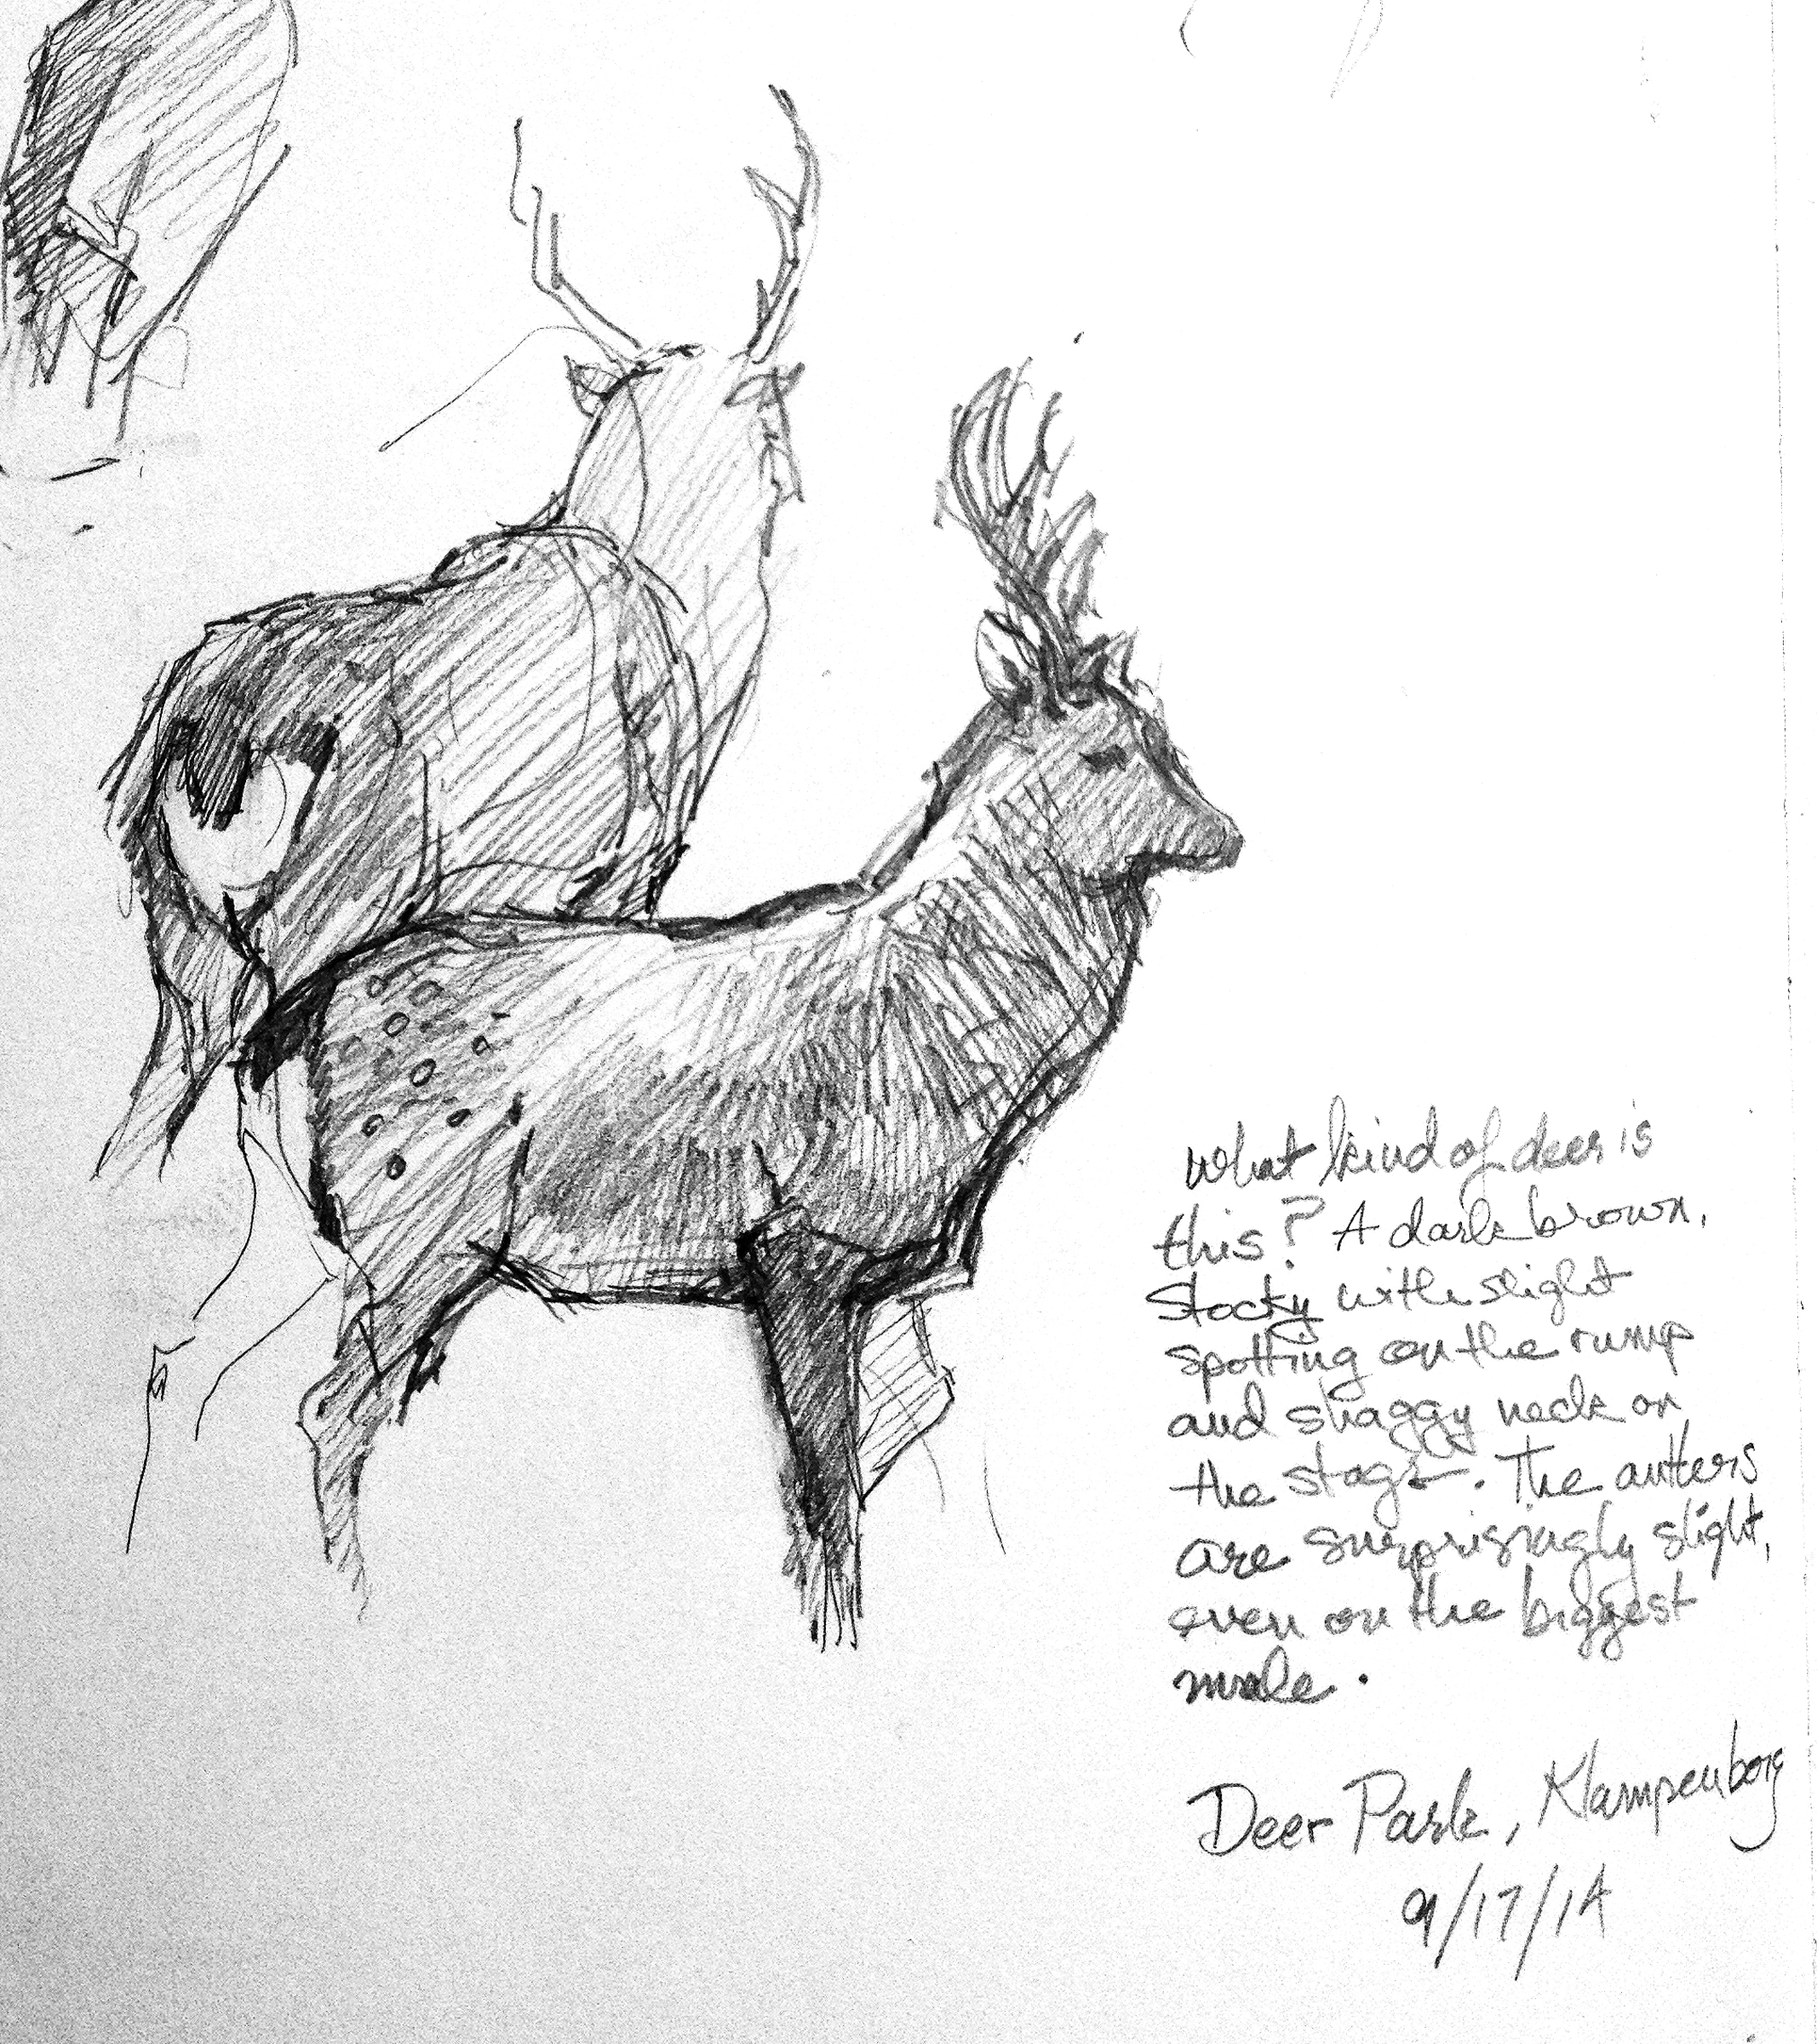 What kind of deer is
this? A dark brown,
stocky with slight
spotting on the rump
and shaggy neck on
the stags. The antlers
are surprisingly slight,
even on the biggest
male.
Deer Park, Klampenborg
9/17/14